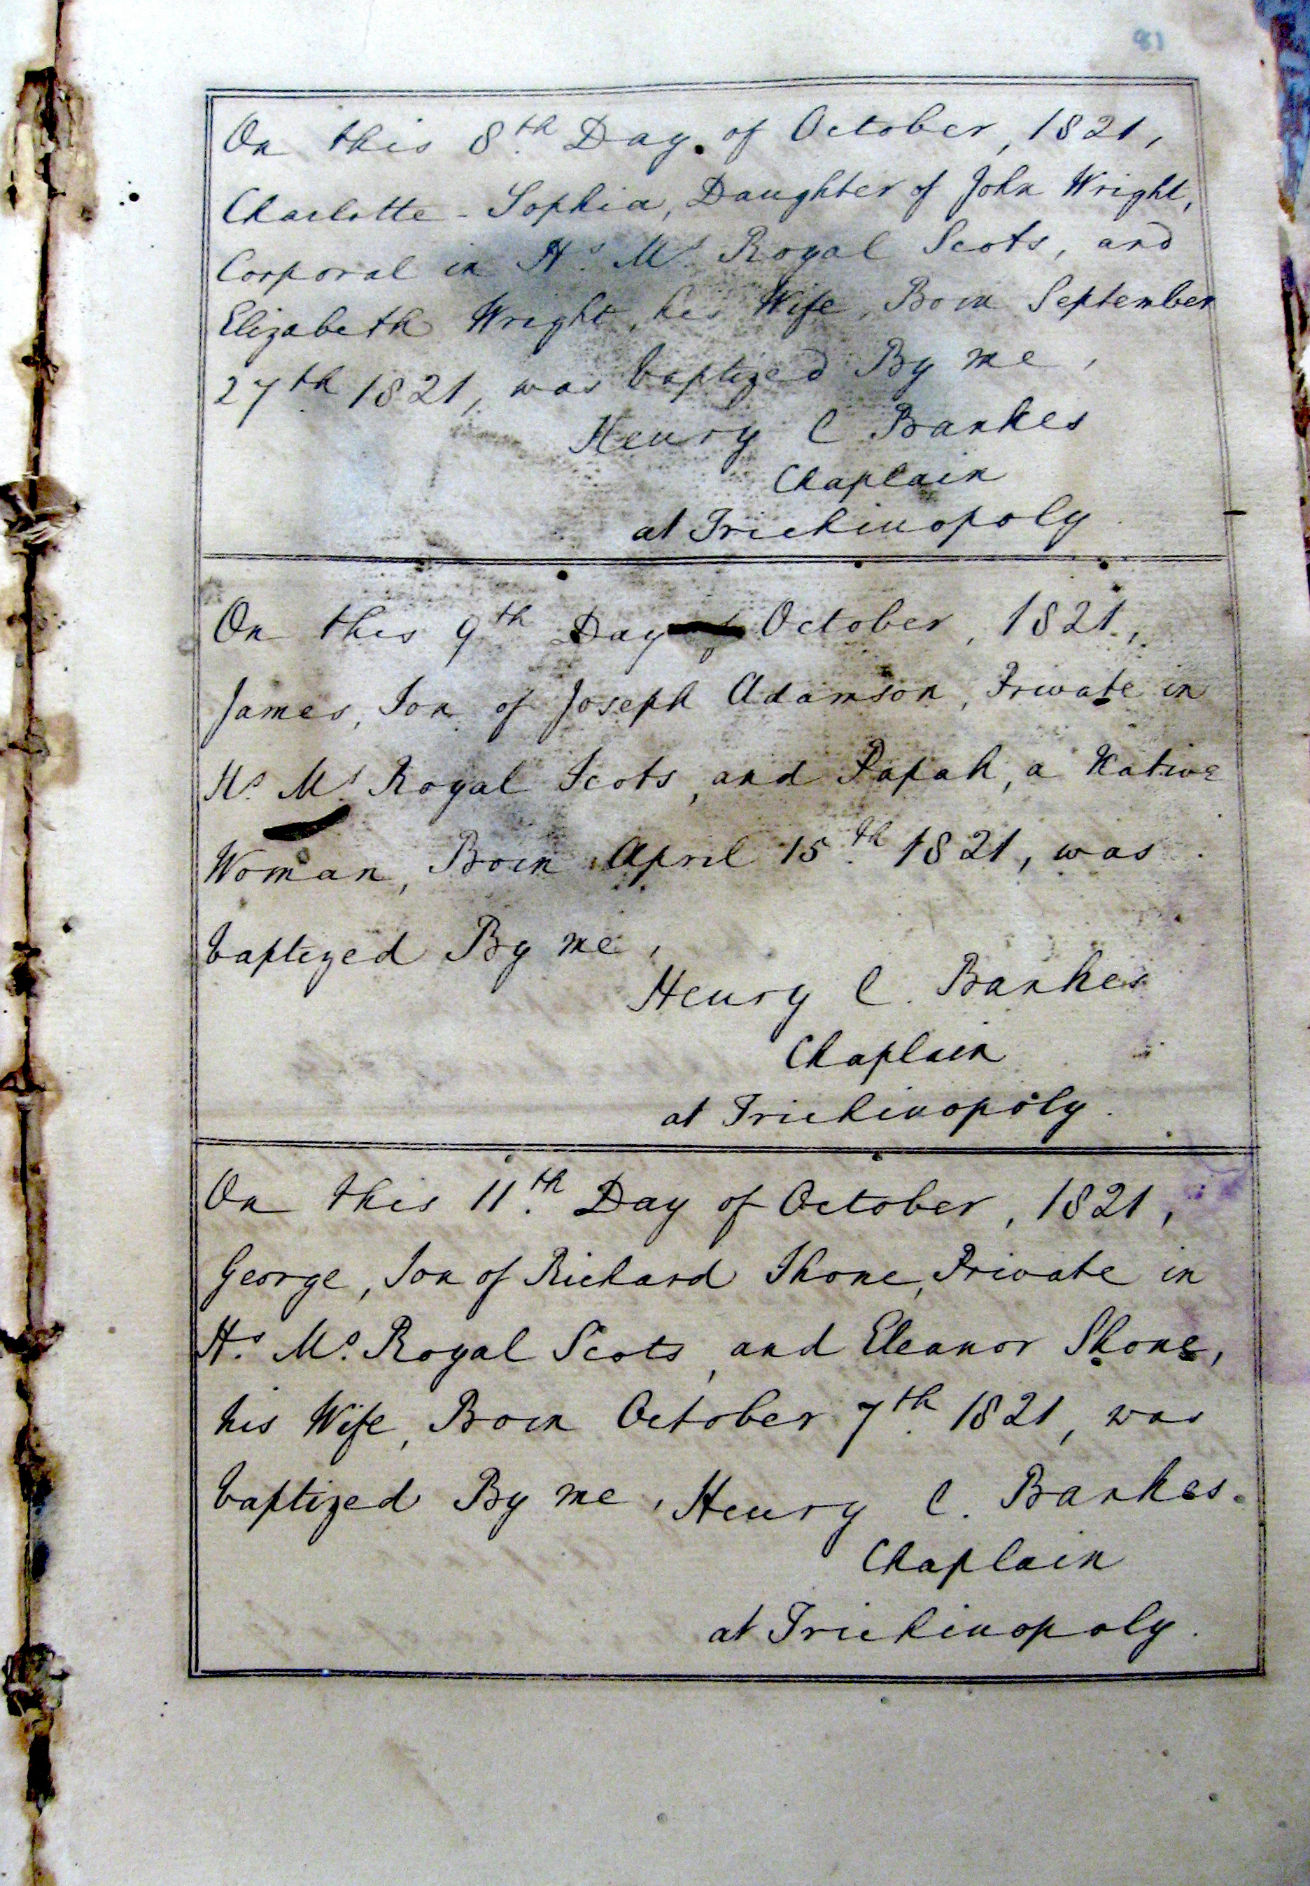 81
On this 8th Day of October, 1821,
Charlotte - Sophia, Daughter of John Wright,
Corporal in Hs. Ms. Royal Scots, and
Elizabeth Wright, his Wife, Born September
27th 1821, was baptized By me,
Henry C Bankes
Chaplain
at Trichinopoly.
On this 9th Day of October, 1821,
James, Son of Joseph Adamson, Private in
Hs. Ms. Royal Scots, and Papah, a Native
Woman, Born April 15th 1821, was
baptized By me,
Henry C. Bankes
Chaplain
at Trichinopoly.
On this 11th Day of October, 1821,
George, Son of Richard Shone, Private in
Hs. Ms. Royal Scots, and Eleanor Shone,
his Wife, Born October 7th 1821, was
baptized By me, Henry C. Bankes.
Chaplain
at Trichinopoly.